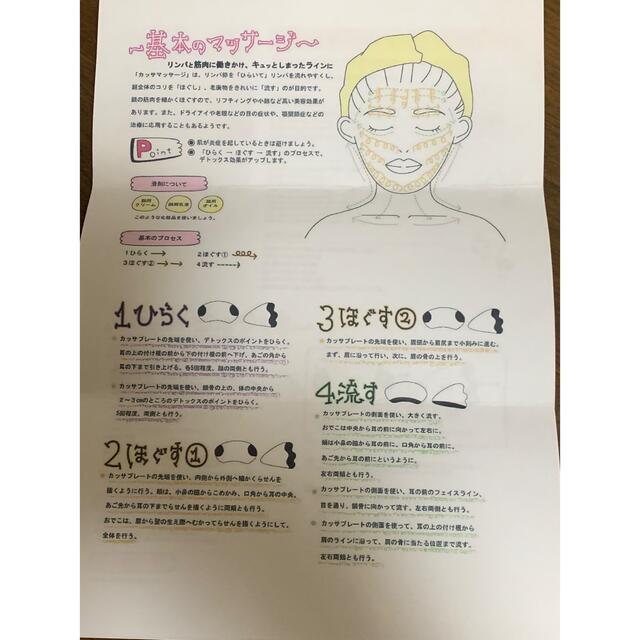 ~基本のマッサージ~
リンパと筋肉に働きかけ、キュッとしまったラインに
「カッサマッサージ」は、リンパ節を「ひらいて」リンパを流れやすくし、
顔全体のコリを「ほぐし」、老廃物をきれいに「流す」のが目的です。
顔の筋肉を細かくほぐすので、リフティングや小顔など高い美容効果が
あります。また、ドライアイや老眼などの目の症状や、顎関節症などの
治療に応用することもあるようです。
Point
肌が炎症を起しているときは避けましょう。
「ひらく → ほぐす → 流す」のプロセスで、
デトックス効果がアップします。
滑剤について
クリーム
オイル
このような化粧品を使いましょう。
基本のプロセス
1 ひらく 2 ほぐす①
3 ほぐす② 4 流す
1 ひらく
カッサプレートの先端を使い、デトックスのポイントをひらく。
耳の上の付け根の前から下の付け根の前へ下げ、あごの先から
耳の下まで引き上げる。各5回程度、顔の両側とも行う。
カッサプレートの先端を使い、鎖骨の上の、体の中央から
2〜3cmのところのデトックスのポイントをひらく。
5回程度、両側とも行う。
2 ほぐす①
カッサプレートの先端を使い、内側から外側へ細かくらせんを
描くように行う。頬は、小鼻の脇からこめかみ、口角から耳の中央、
あご先から耳の下までらせんを描くように両頬とも行う。
おでこは、眉から髪の生え際へむかってらせんを描くようにして、
全体を行う。
3 ほぐす②
カッサプレートの先端を使い、眉頭から眉尻まで小刻みに進む。
まず、眉に沿って行い、次に、眉の骨の上を行う。
4 流す
カッサプレートの側面を使い、大きく流す。
おでこは中央から耳の前に向かって左右に。
頬は小鼻の脇から耳の前に、口角から耳の前に、
あご先から耳の前にというように。
左右両頬とも行う。
カッサプレートの側面を使い、耳の前のフェイスライン、
首を通り、鎖骨に向かって流す。左右両側とも行う。
カッサプレートの側面を使って、耳の上の付け根から
肩のラインに沿って、肩の骨に当たる位置まで流す。
左右両頬とも行う。